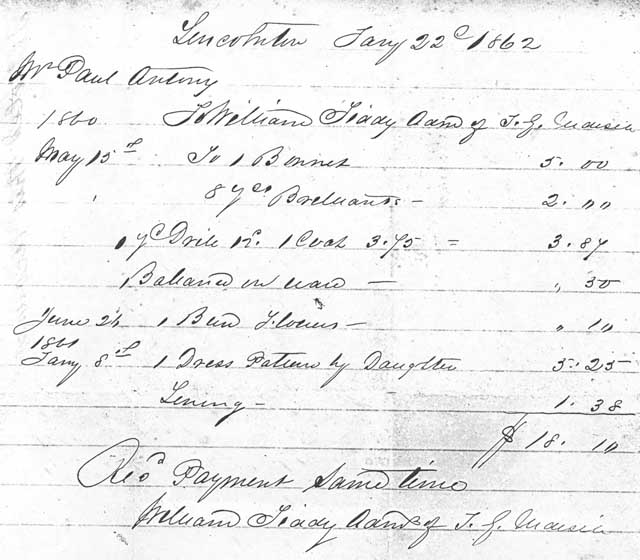 Lincolnton Jany 22d 1862
Mr Paul Antony
1860 To William Tiddy Adm of T. G.
May 15th To 1 Bonnet 5.00
8 yds Brilliants - 2.00
1 yd Drile 12. 1 Coat 3.75 = 3.87
Balance on — " 30
June 26 1 Flowers - " 10
1861
Jany 8th 1 Dress Pattern by Daughter 5.25
Lining - 1.38
$ 18.10
Recd Payment Same time
William Tiddy Adm of T. G.